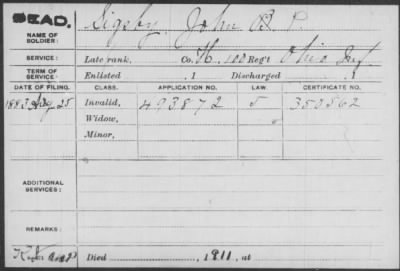 DEAD.
NAME OF SOLDIER: Sigsby, John B. P.
SERVICE: Late rank, Co. H. 100 Reg't Ohio Inf.
TERM OF SERVICE: Enlisted , 1 Discharged , 1
DATE OF FILING. CLASS. APPLICATION NO. LAW. CERTIFICATE NO.
1883 Aug. 25 Invalid, 493872 350562
Widow,
Minor,
ADDITIONAL SERVICES:
REMARKS:
Died , 1911, at